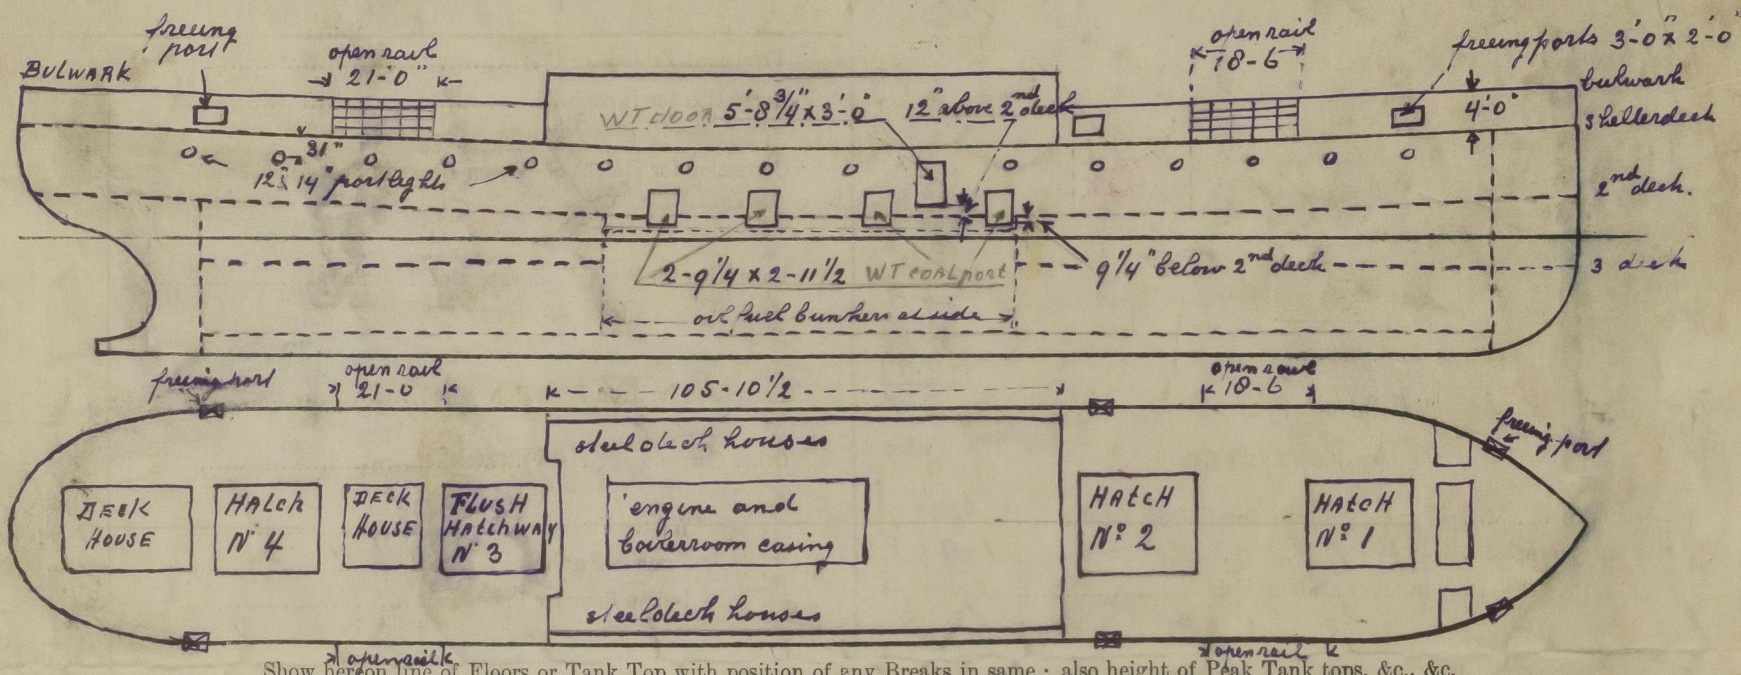 freeing
port
open rail
21-0"
BULWARK
open rail
18-6
freeing ports 3'-0" x 2'-0"
bulwark
4'-0"
shelterdeck
WT door 5'-8 3/4" x 3'-0" 12" above 2nd deck
31"
12 x 14" portlights
2nd deck.
2-9 1/4 x 2-11 1/2 WT coal port
9 1/4" below 2nd deck
3 deck
oil fuel bunkers at side
freeing port
open rail
21-0
105-10 1/2
open rail
18-6
freeing-port
steel deck houses
DECK
HOUSE
HAtch
No 4
DECK
HOUSE
FLUSH
HAtchWAY
No 3
engine and
boilerroom casing
HAtCH
No 2
HAtCH
No 1
steeldeck houses
open rail
open rail
Show hereon line of Floors or Tank Top with position of any Breaks in same; also height of Peak Tank tops, &c., &c.